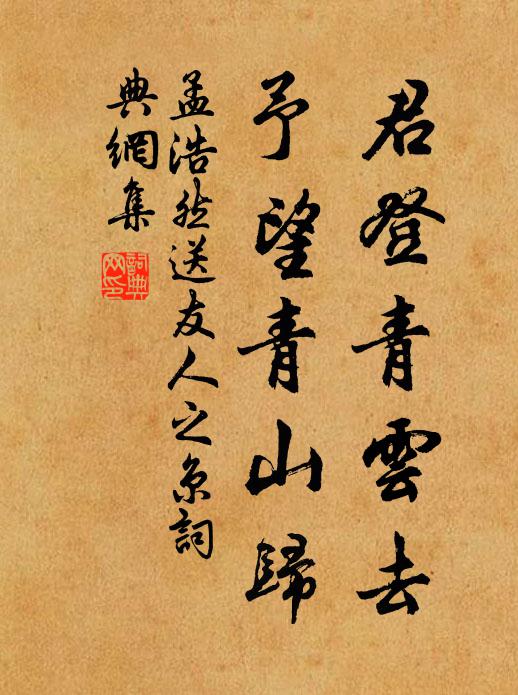 君登青雲去
予望青山歸
孟浩然送友人之京詞
典網集
詞典網印